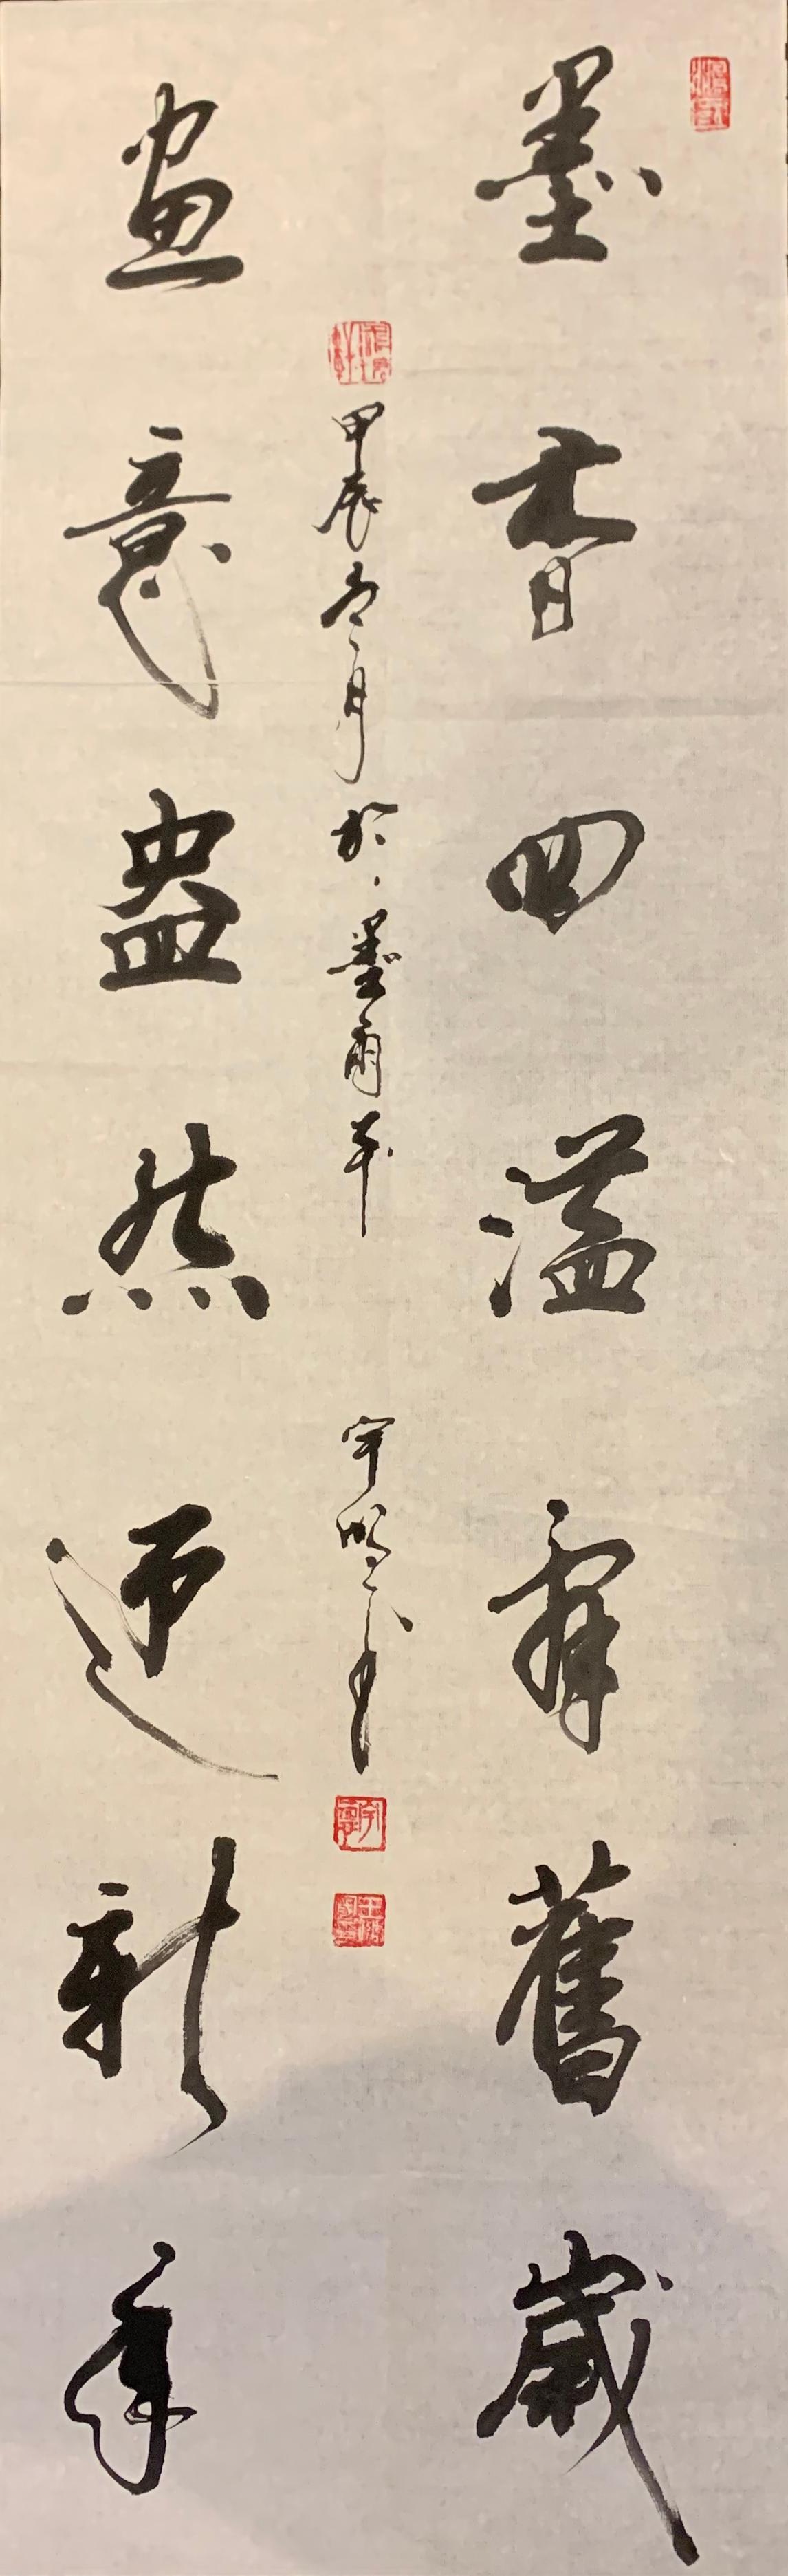 墨香四溢辭舊歲
畫意盎然迎新年
甲辰冬月於墨雨軒
宇鳴書